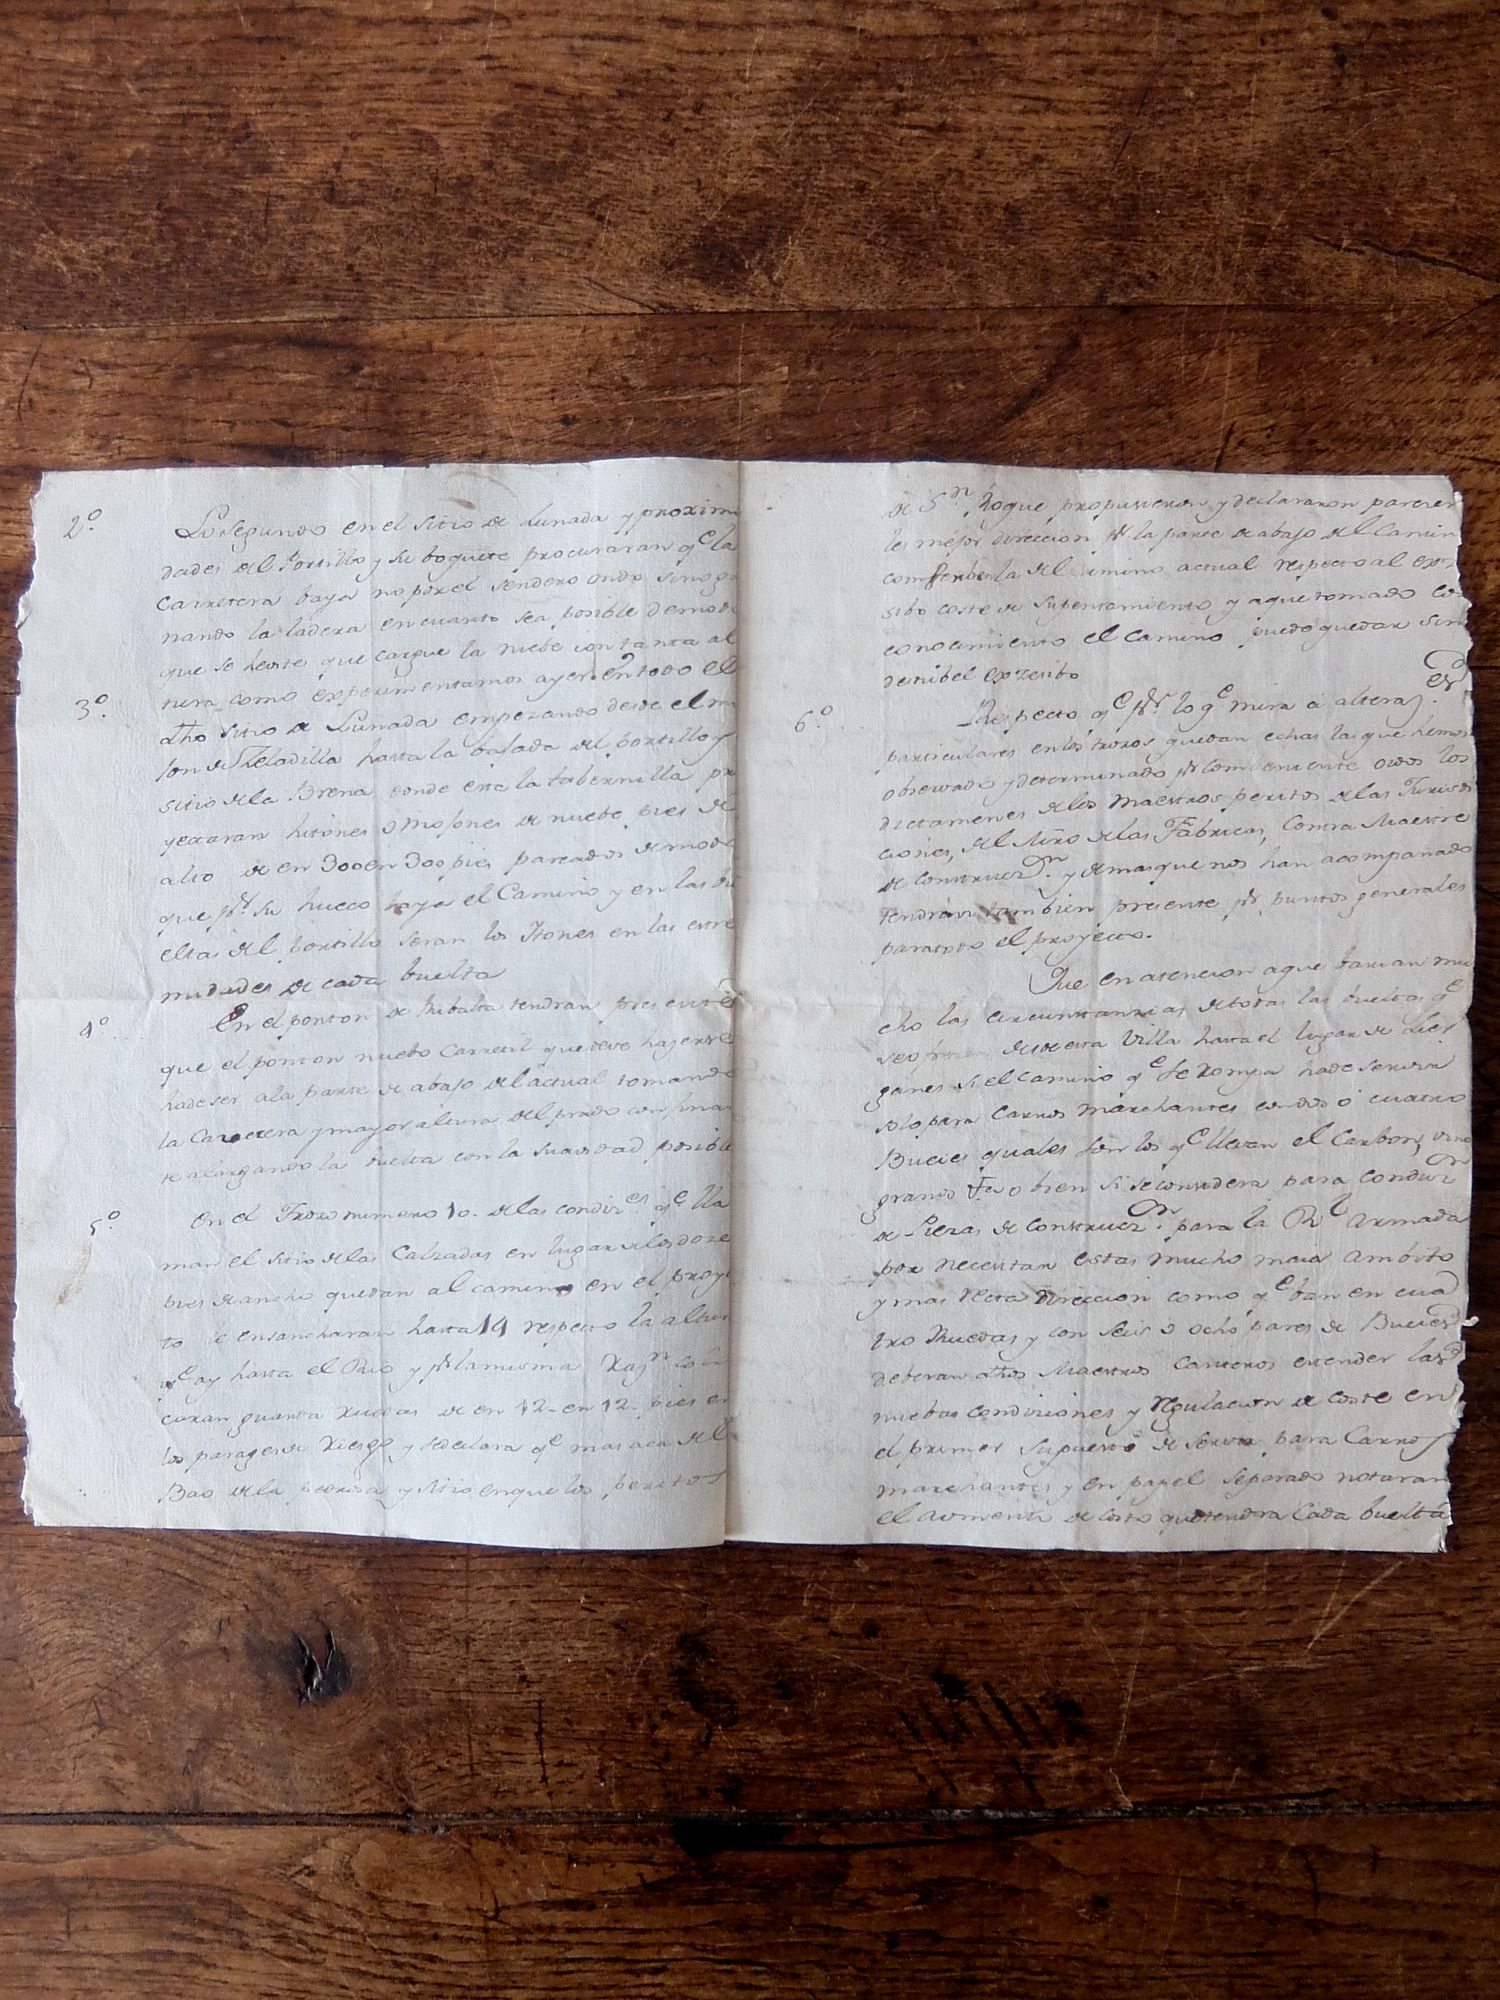 2.º Lo segundo en el sitio de Lunada y proximi
dades del Portillo y su boquete procuraran qe la
Carretera baya no por el sendero ondo sino ga
nando la ladera en cuanto sea posible de modo
que se hevite que cargue la niebe con tanta al
tura como experimentamos ayer en todo el
3.º dho sitio de Lunada empezando desde el m
jon de Zeladilla hasta la bajada del portillo y
sitio de la Brena donde esta la tabernilla pr
yectaran hitones o Mojones de nuebe pies de
alto de en 300 en 300 pies pareados de modo
que pr su hueco haya el Camino y en las bu
eltas del portillo seran los Itones en las estre
midades de cada buelta
4º En el ponton de Rubalta tendran presente
que el ponton nuebo Carretil que deve hazerse
ha de ser a la parte de abajo del actual tomando
la Carretera y mayor altura del prado confinan
te alargando la buelta con la suavidad posible
5.º En el Trozo numero 10. de las condizes qe lla
man el sitio de las Calzadas en lugar de los doze
pies de ancho quedan al camino en el proye
to le ensancharan hasta 14 respecto la altur
qe ay hasta el Rio y pr la misma Razn colo
caran guarda ruedas de en 12 en 12 pies en
los parages de riesgo y se declara qe mas aca del
Bao de la pedrosa y sitio en que los peritos
de Sn Roque propusieron y declararon parecer
les mejor direccion pr la parte de abajo del Camin
la del camino actual respecto al exze
sibo coste de supentamiento y a que tomado co
nocimiento el camino puede quedar sin
desnibel exzesibo
6.º Respecto qe pr lo qe mira a alteraz.es
particulares en los trozos quedan echas las que hemos
obserbado y determinado pr combeniente oidos los
dictamenes de los Maestros peritos de las Jurisdi
ciones, del Mro de las Fabricas, Contra Maestre
de Construczn y demas que nos han acompañado
tendran tambien presente pr puntos generales
para todo el proyecto.
Que en atencion a que barian mu
cho las circunstanzias de todas las bueltas qe
desde esta Villa hasta el lugar de Lier
ganes si el camino qe se rompa ha de servir
solo para Carros Marchantes con dos o cuatro
Bueies quales son los qe llevan el Carbon, vino
granos &a o bien si se considera para conduzn
de Piezas de Construczn para la Rl Armada
por necesitar estas mucho maior ambito
y mas recta direccion como qe ban en cua
tro Ruedas y con seis o ocho pares de Bueies
deberan dhos Maestros Canteros estender las
nuebas condiziones y regulacion de coste en
el primer supuesto de servir para Carros
marchantes y en papel separado notaran
el aumento de costo que tendra Cada buelta